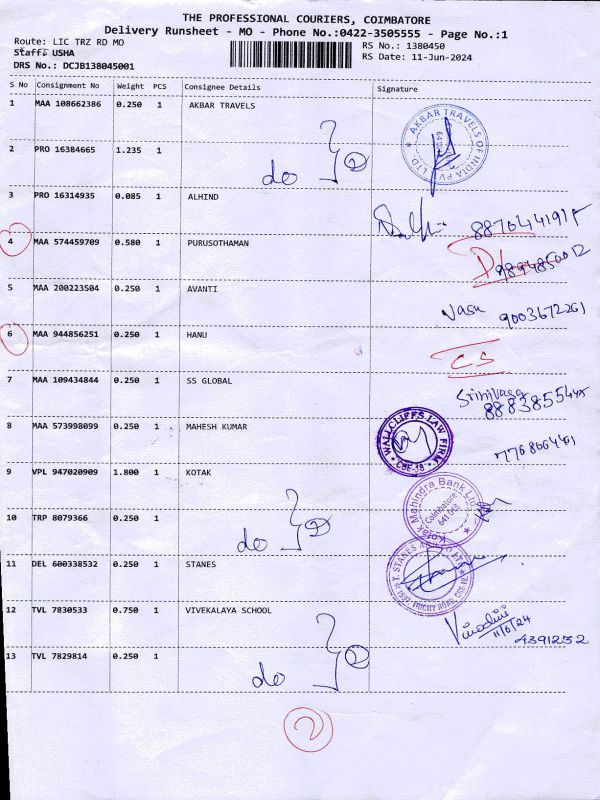 THE PROFESSIONAL COURIERS, COIMBATORE
Delivery Runsheet - MO - Phone No.:0422-3505555 - Page No.:1
Route: LIC TRZ RD MO
RS No.: 1380450
Staff: USHA
RS Date: 11-Jun-2024
DRS No.: DCJB138045001
S No Consignment No Weight PCS Consignee Details Signature
1 MAA 108662386 0.250 1 AKBAR TRAVELS
AKBAR TRAVELS OF INDIA PVT. LTD.
2 PRO 16384665 1.235 1 do 2
3 PRO 16314935 0.085 1 ALHIND
4 MAA 574459709 0.580 1 PURUSOTHAMAN
5 MAA 200223504 0.250 1 AVANTI Vasu 9003672261
6 MAA 944856251 0.250 1 HANU CS
7 MAA 109434844 0.250 1 SS GLOBAL Srinivasa
8 MAA 573998099 0.250 1 MAHESH KUMAR
WALLCLIFFS LAW FIRM
CBE-18
9 VPL 947020909 1.800 1 KOTAK
Kotak Mahindra Bank Ltd.
Coimbatore
641 018
10 TRP 8079366 0.250 1 do 2
11 DEL 600338532 0.250 1 STANES
12 TVL 7830533 0.750 1 VIVEKALAYA SCHOOL Vinodini
11/6/24
4391252
13 TVL 7829814 0.250 1 do 2
2